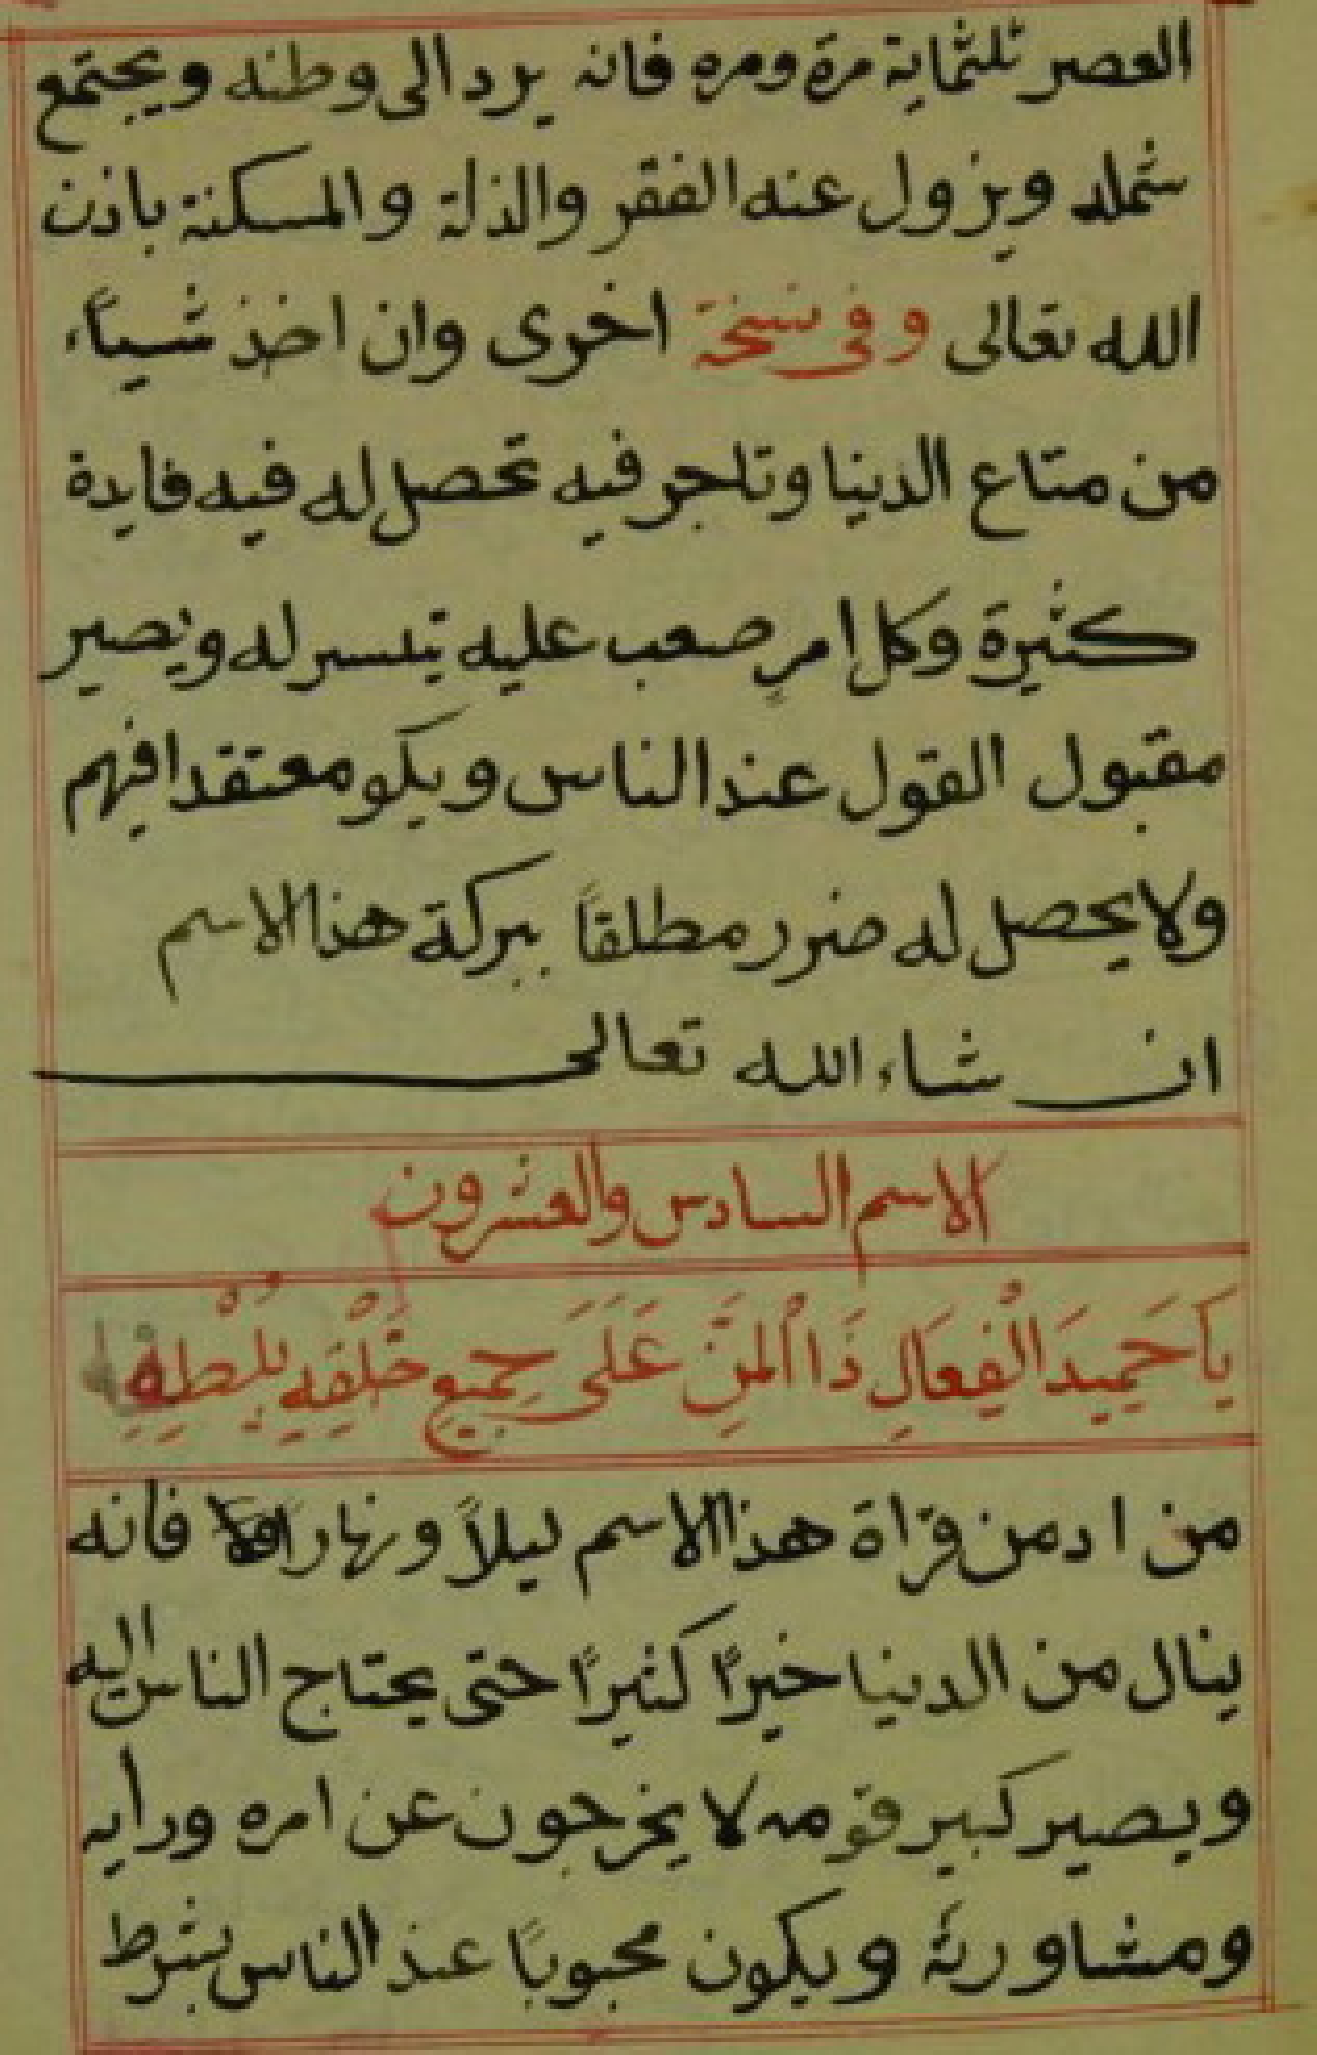 العصر ثلثماية مرة ومره فانه يرد الى وطنه ويجتمع
شمله ويزول عنه الفقر والذلة والمسكنة باذن
الله تعالى وفى نسخة اخرى وان اخذ شياً،
من متاع الدنيا وتاجر فيه تحصل له فيه فايدة
كثيرة وكل امرٍ صعب عليه تيسر له ويصير
مقبول القول عند الناس ويكو معتقدا فيهم
ولا يحصل له ضرر مطلقاً ببركة هذا الاسم
ان شاء الله تعالى
الاسم السادس والعشرون
يَا حَمِيدَ الْفِعَالِ ذَا الْمَنِّ عَلَى جَمِيعِ خَلْقِهِ بِلُطْفِهِ
من ادمن قراة هذا الاسم ليلاً ونهاراً فانه
ينال من الدنيا خيراً كثيراً حتى يحتاج الناس اليه
ويصير كبير قومه لا يخرجون عن امره ورأيه
ومشاورته ويكون محبوباً عند الناس بشرط